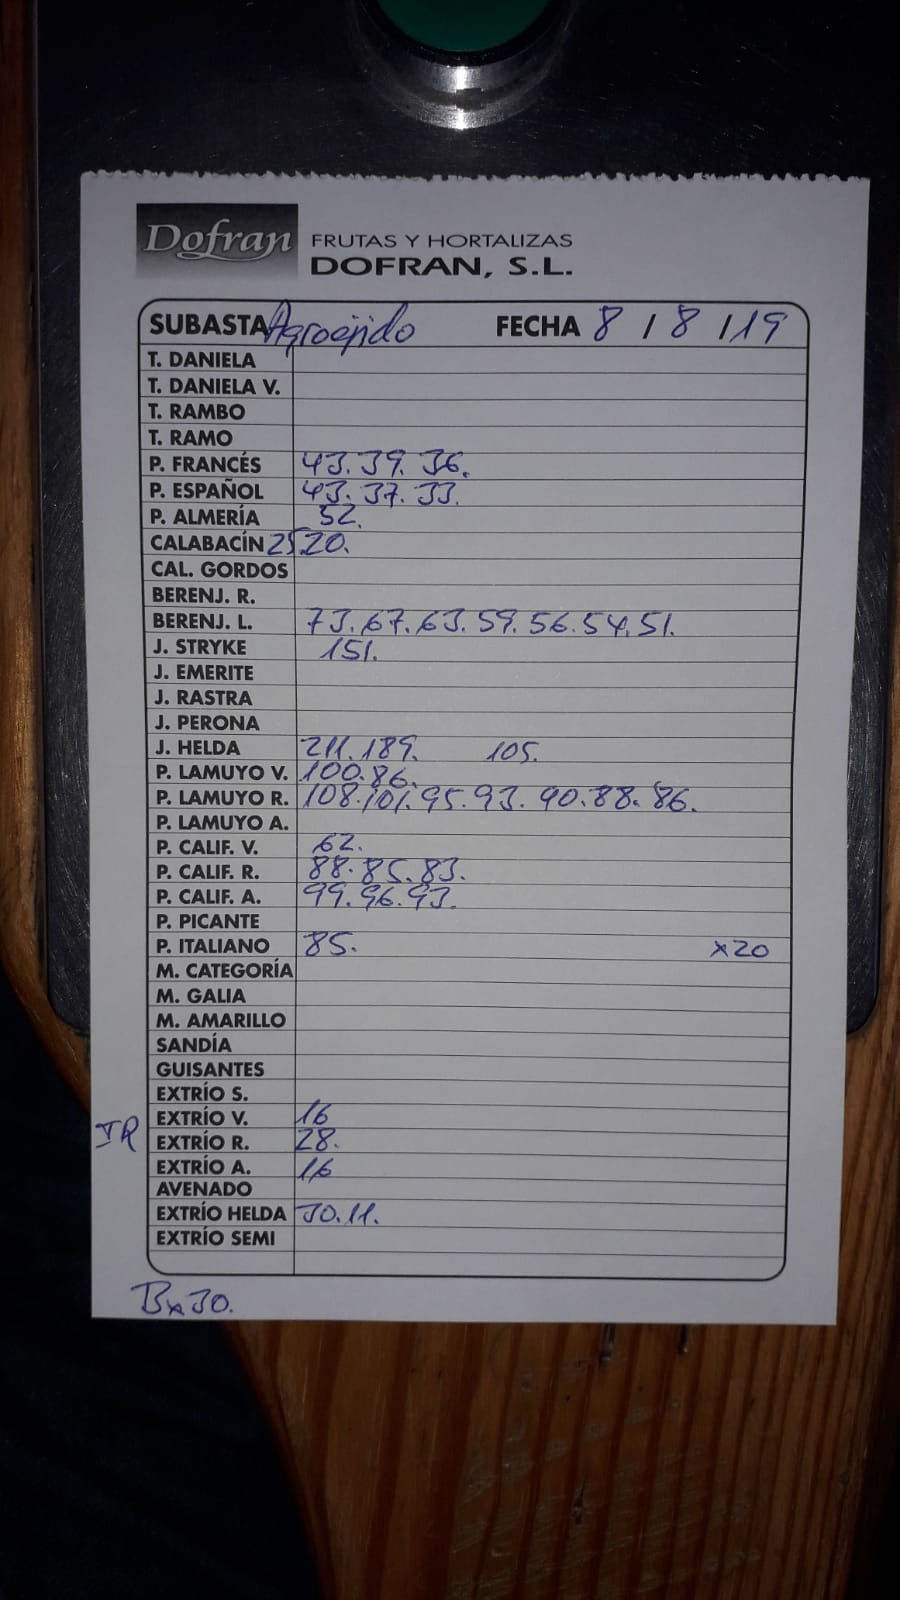 Dofran FRUTAS Y HORTALIZAS
DOFRAN, S.L.
SUBASTA Agroejido FECHA 8 / 8 / 19
T. DANIELA
T. DANIELA V.
T. RAMBO
T. RAMO
P. FRANCÉS 43. 39. 36.
P. ESPAÑOL 43. 37. 33.
P. ALMERÍA 52.
CALABACÍN 25 20.
CAL. GORDOS
BERENJ. R.
BERENJ. L. 73. 67. 63. 59. 56. 54. 51.
J. STRYKE 151.
J. EMERITE
J. RASTRA
J. PERONA
J. HELDA 211. 189. 105.
P. LAMUYO V. 100. 86.
P. LAMUYO R. 108. 101. 95. 93. 90. 88. 86.
P. LAMUYO A.
P. CALIF. V. 62.
P. CALIF. R. 88. 85. 83.
P. CALIF. A. 99. 96. 93.
P. PICANTE
P. ITALIANO 85. x20
M. CATEGORÍA
M. GALIA
M. AMARILLO
SANDÍA
GUISANTES
EXTRÍO S.
EXTRÍO V. 16
IR EXTRÍO R. 28.
EXTRÍO A. 16
AVENADO
EXTRÍO HELDA 30. 11.
EXTRÍO SEMI
Bx30.